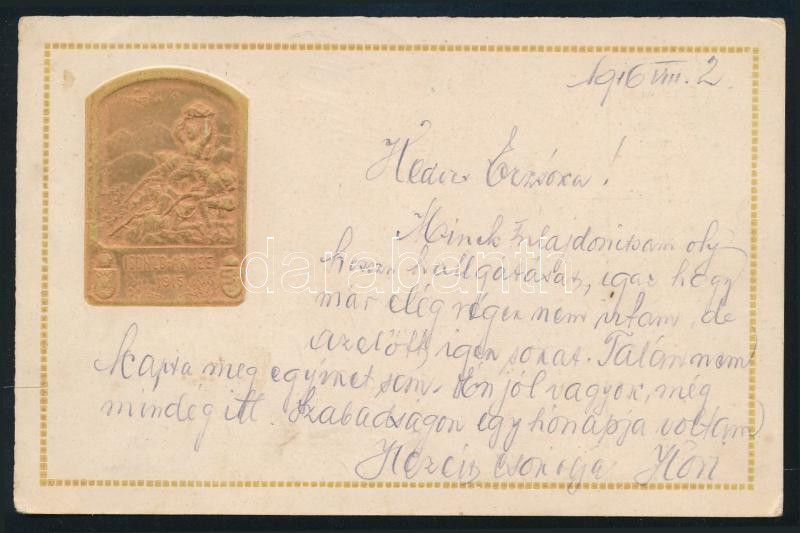 1916 VIII. 2
Kedves Erzsóka!
Minek tulajdonitsam oly
hosszu hallgatását, igaz hogy
már elég régen nem irtam, de
azelőtt igen sokat. Talán nem
kapta meg egyiket sem. Én jól vagyok, még
mindég itt. Szabadságon egy hónapja voltam
Kezeit csókolja
ISONZO-ARMEE
1915
darabanth